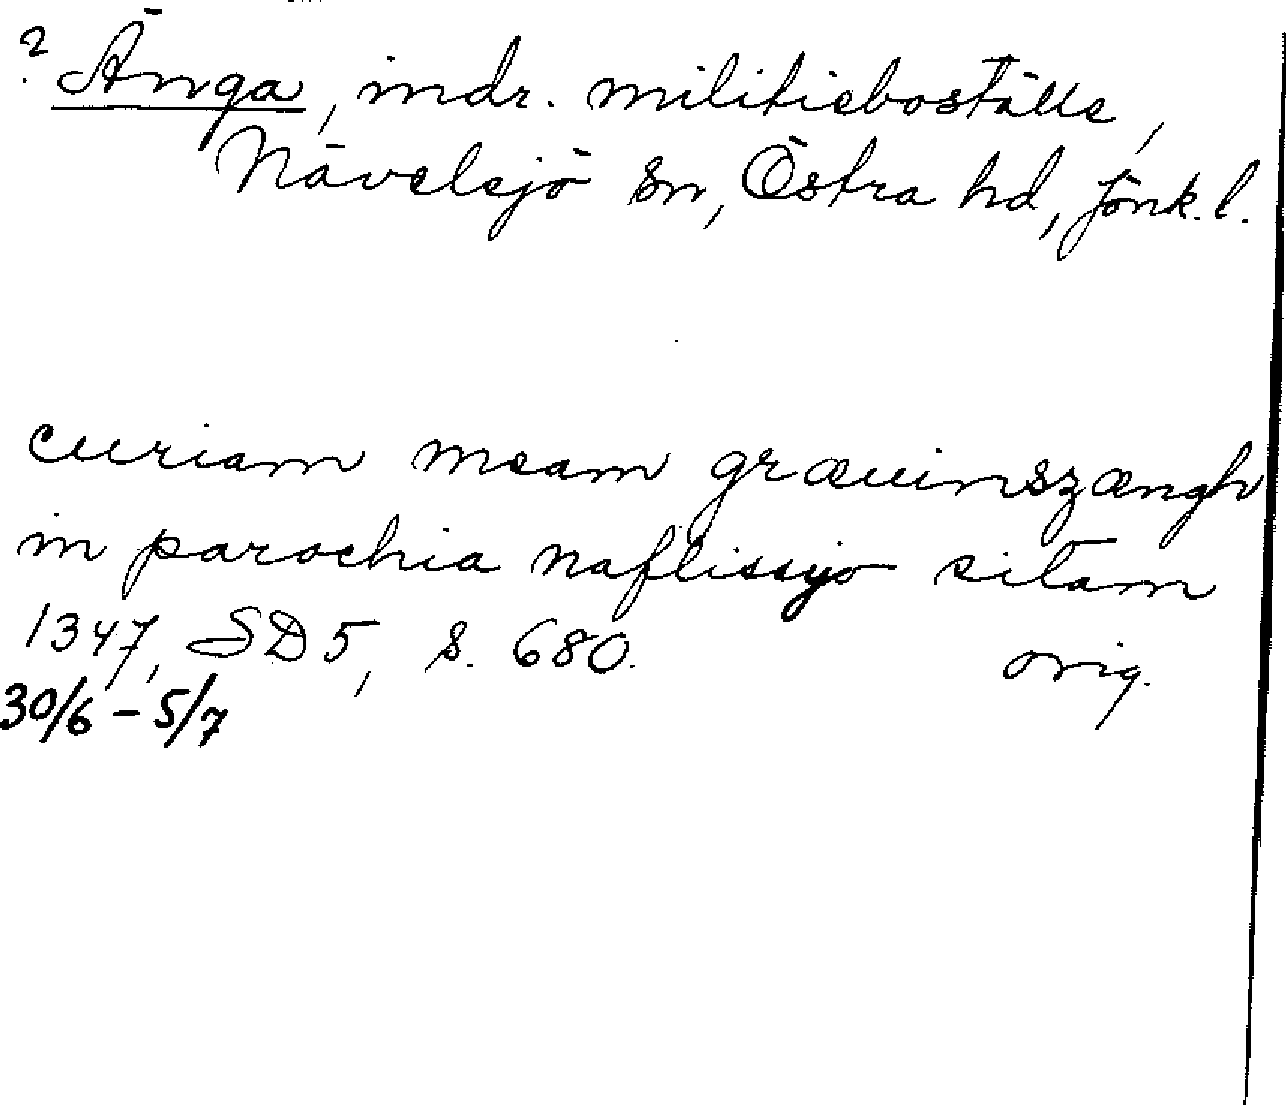 ? Änga, indr. militieboställe,
Nävelsjö sn, Östra hd, Jönk. l.
curiam meam græuinszængh
in parochia naflissyo sitam
1347, SD 5, s. 680. orig.
30/6 - 5/7